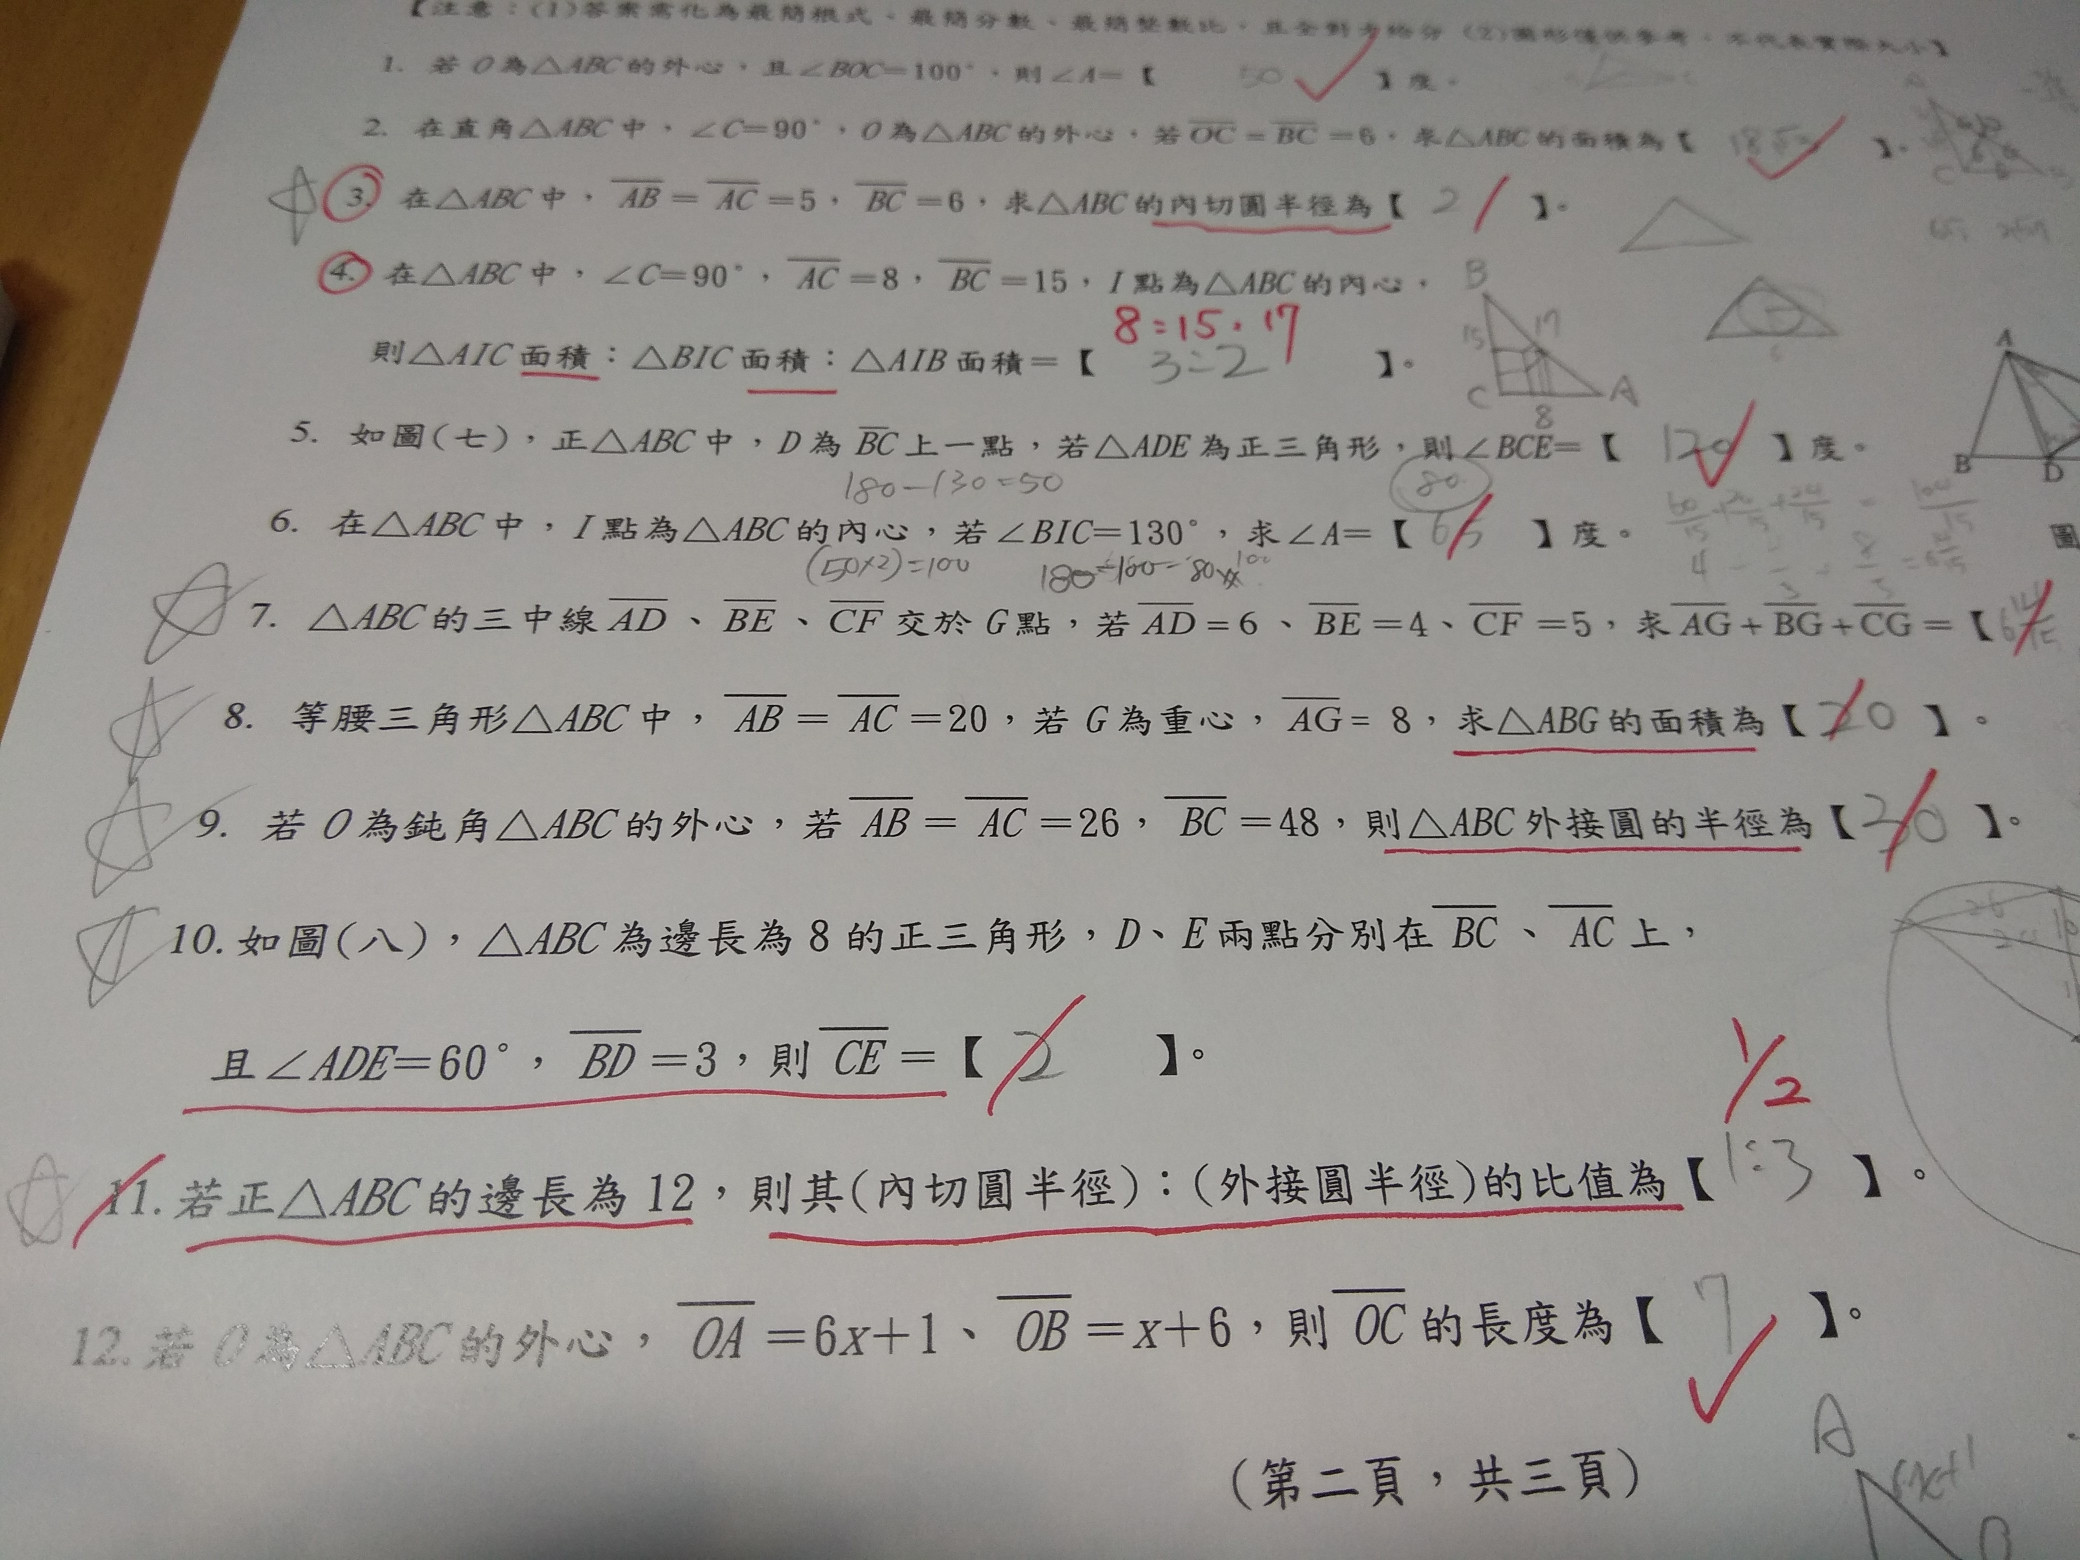 【注意：(1)答案需化為最簡根式、最簡分數、最簡整數比，且全對才給分 (2)圖形僅供參考，不代表實際大小】
1. 若 O 為△ABC 的外心，且∠BOC=100°，則∠A=【 50 】度。
2. 在直角△ABC 中，∠C=90°，O 為△ABC 的外心，若 OC = BC =6，求△ABC 的面積為【 18√3 】。
3. 在△ABC 中， AB = AC =5， BC =6，求△ABC 的內切圓半徑為【 2 】。
4. 在△ABC 中，∠C=90°， AC =8， BC =15，I 點為△ABC 的內心，
B
15 17
C 8 A
8:15:17
則△AIC 面積：△BIC 面積：△AIB 面積=【 3:2 】。
A
B D
5. 如圖(七)，正△ABC 中，D 為 BC 上一點，若△ADE 為正三角形，則∠BCE=【 120 】度。
180-130=50
80
6. 在△ABC 中，I 點為△ABC 的內心，若∠BIC=130°，求∠A=【 65 】度。
圖
(50×2)=100 180-100=80
7. △ABC 的三中線 AD 、 BE 、 CF 交於 G 點，若 AD = 6 、 BE =4、 CF =5，求 AG + BG + CG =【 6 14/15
8. 等腰三角形△ABC 中， AB = AC =20，若 G 為重心， AG = 8，求△ABG 的面積為【 20 】。
9. 若 O 為鈍角△ABC 的外心，若 AB = AC =26， BC =48，則△ABC 外接圓的半徑為【 30 】。
26
24 10
10. 如圖(八)，△ABC 為邊長為 8 的正三角形，D、E 兩點分別在 BC 、 AC 上，
且∠ADE=60°， BD =3，則 CE =【 2 】。
1/2
11. 若正△ABC 的邊長為 12，則其(內切圓半徑)：(外接圓半徑)的比值為【 1:3 】。
12. 若 O 為△ABC 的外心， OA =6x+1、 OB =x+6，則 OC 的長度為【 7 】。
A
6x+1
(第二頁，共三頁)